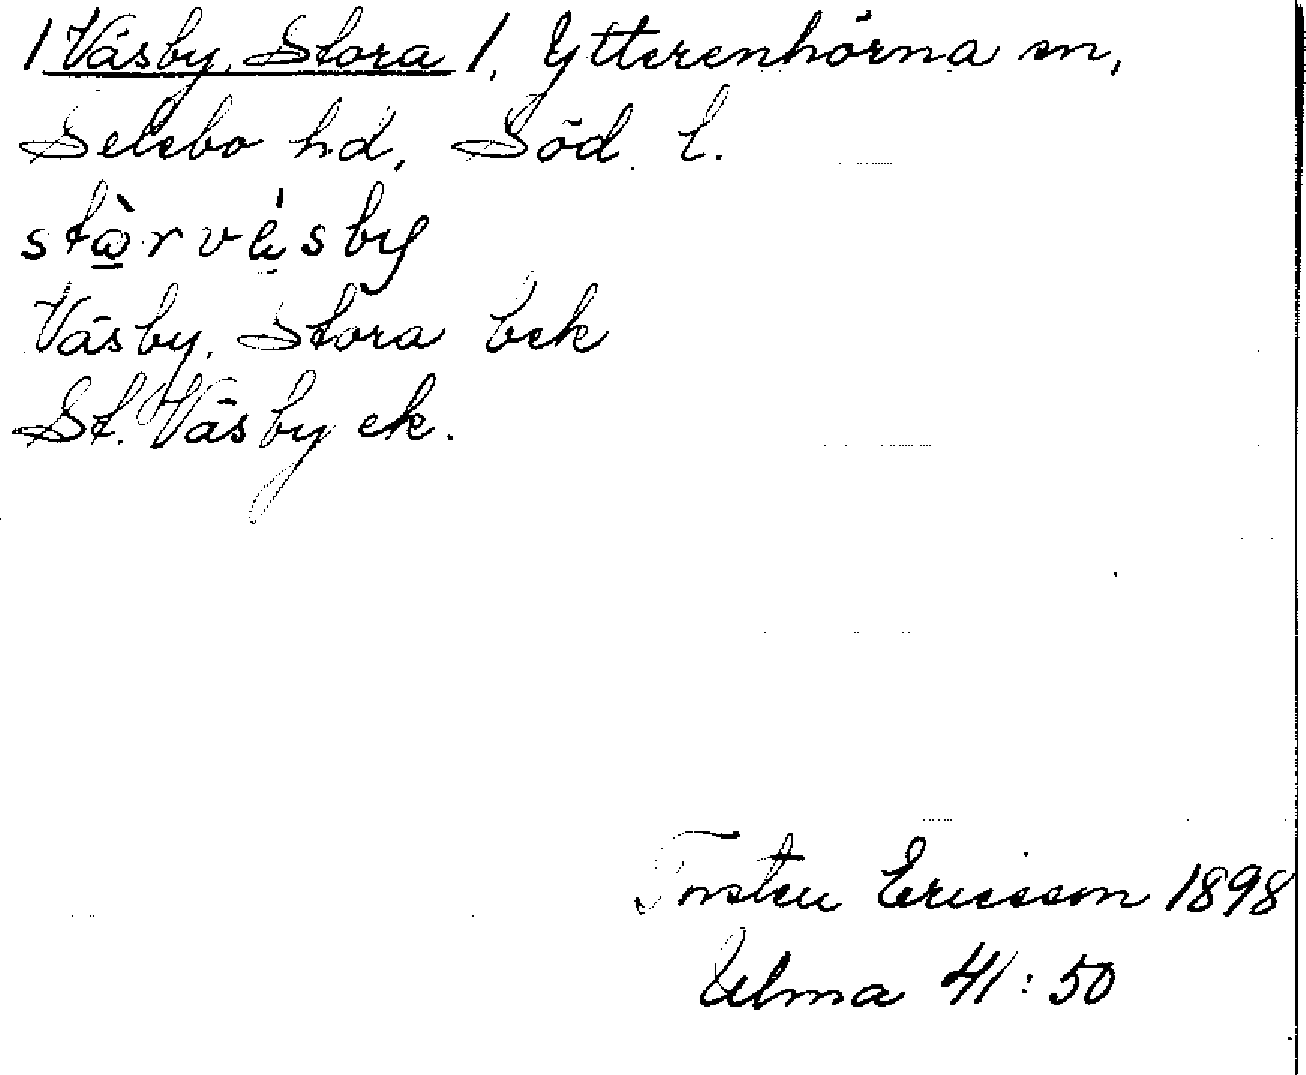 /Väsby, Stora/. Ytterenhörna sn,
Selebo hd, Söd. l.
Väsby, Stora bek
St. Väsby ek.
Torsten Ericsson 1898
Ulma 41:50